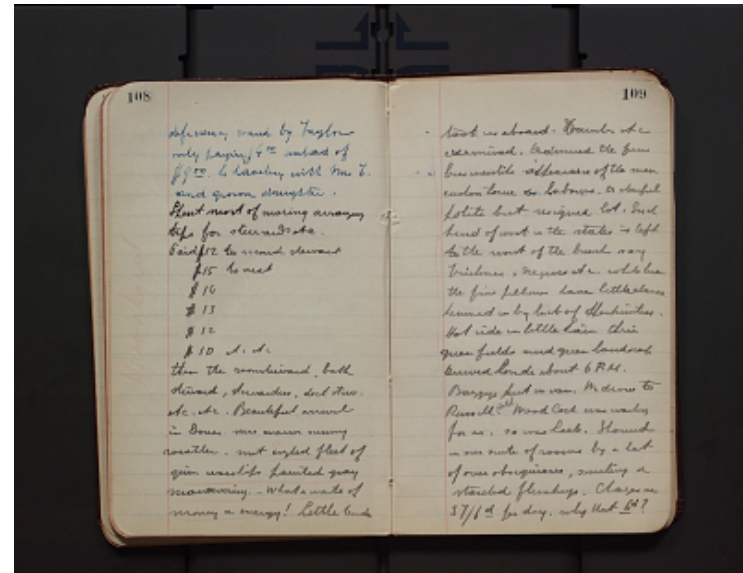 108
deficiency caused by Taylor
only paying $4.00 instead of
$9.00 to Lavalry with Mrs T.
and grown daughter.
Spent most of morning arranging
tips for stewards etc.
Paid $12 to second steward
$15 to next
$14
$13
$12
$10 etc. etc.
then the
steward, stewardess, deck stew.
etc. etc. Beautiful arrival
in Dover.
met English fleet of
grim warships painted gray
manoeuvring. - What a waste of
money & energy! Little
109
took us aboard. Trunks etc
examined. Admired the fine
appearance of the men
custom house
polite but resigned lot. Such
kind of work in the states is left
to the worst of the bunch say
Irishmen, negroes etc. while here
the fine fellows have little chance
hemmed in by lack of opportunities.
Hot ride in little train thru
green fields and green
arrived London about 6 P.M.
Baggage put in van. We drove to
Russell. Wood Cock was waiting
for us, so was Loeb. Showed
in our suite of rooms by a lot
of over obsequious, smiling &
starched flunkeys. Charges are
37/6d per day. why that 6d?